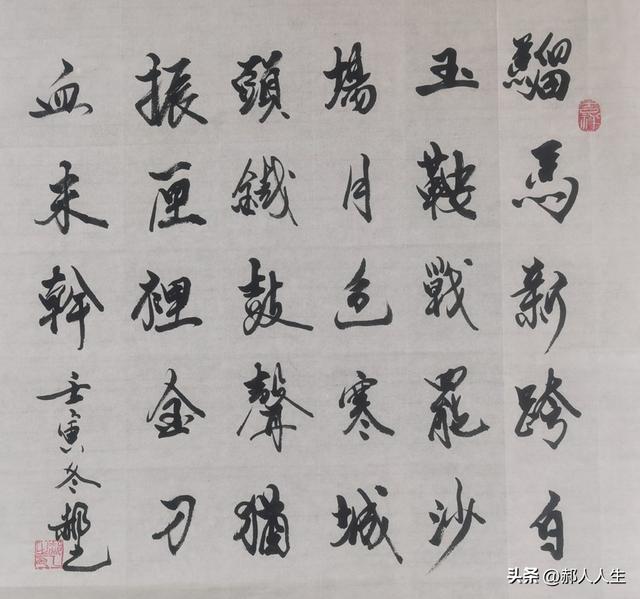 騮馬新跨白
玉鞍戰罷沙
場月色寒城
頭鐵鼓聲猶
振匣裡金刀
血未幹壬寅冬
头条 @郝人人生